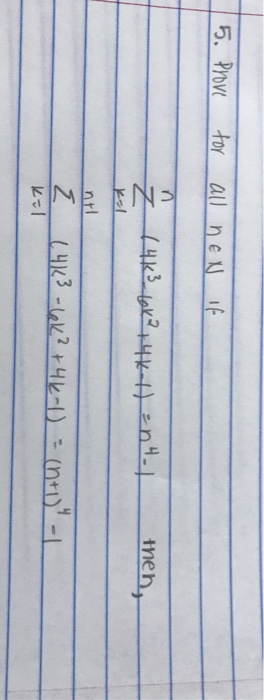 5. Prove for all n ∈ N if
n
Σ (4k³-6k²+4k-1) = n⁴-1 then,
k=1
n+1
Σ (4k³-6k²+4k-1) = (n+1)⁴ -1
k=1